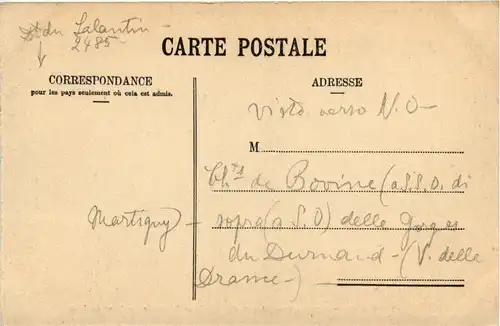 Dt du Salantin
2485
CARTE POSTALE
CORRESPONDANCE
pour les pays seulement où cela est admis.
ADRESSE
visto verso N.O-
M
Ch.ts de Bovine (a S.S.O. di
Martigny - sopra (a S.O) delle Gorges
du Durnand - (V. delle
Dranse -)